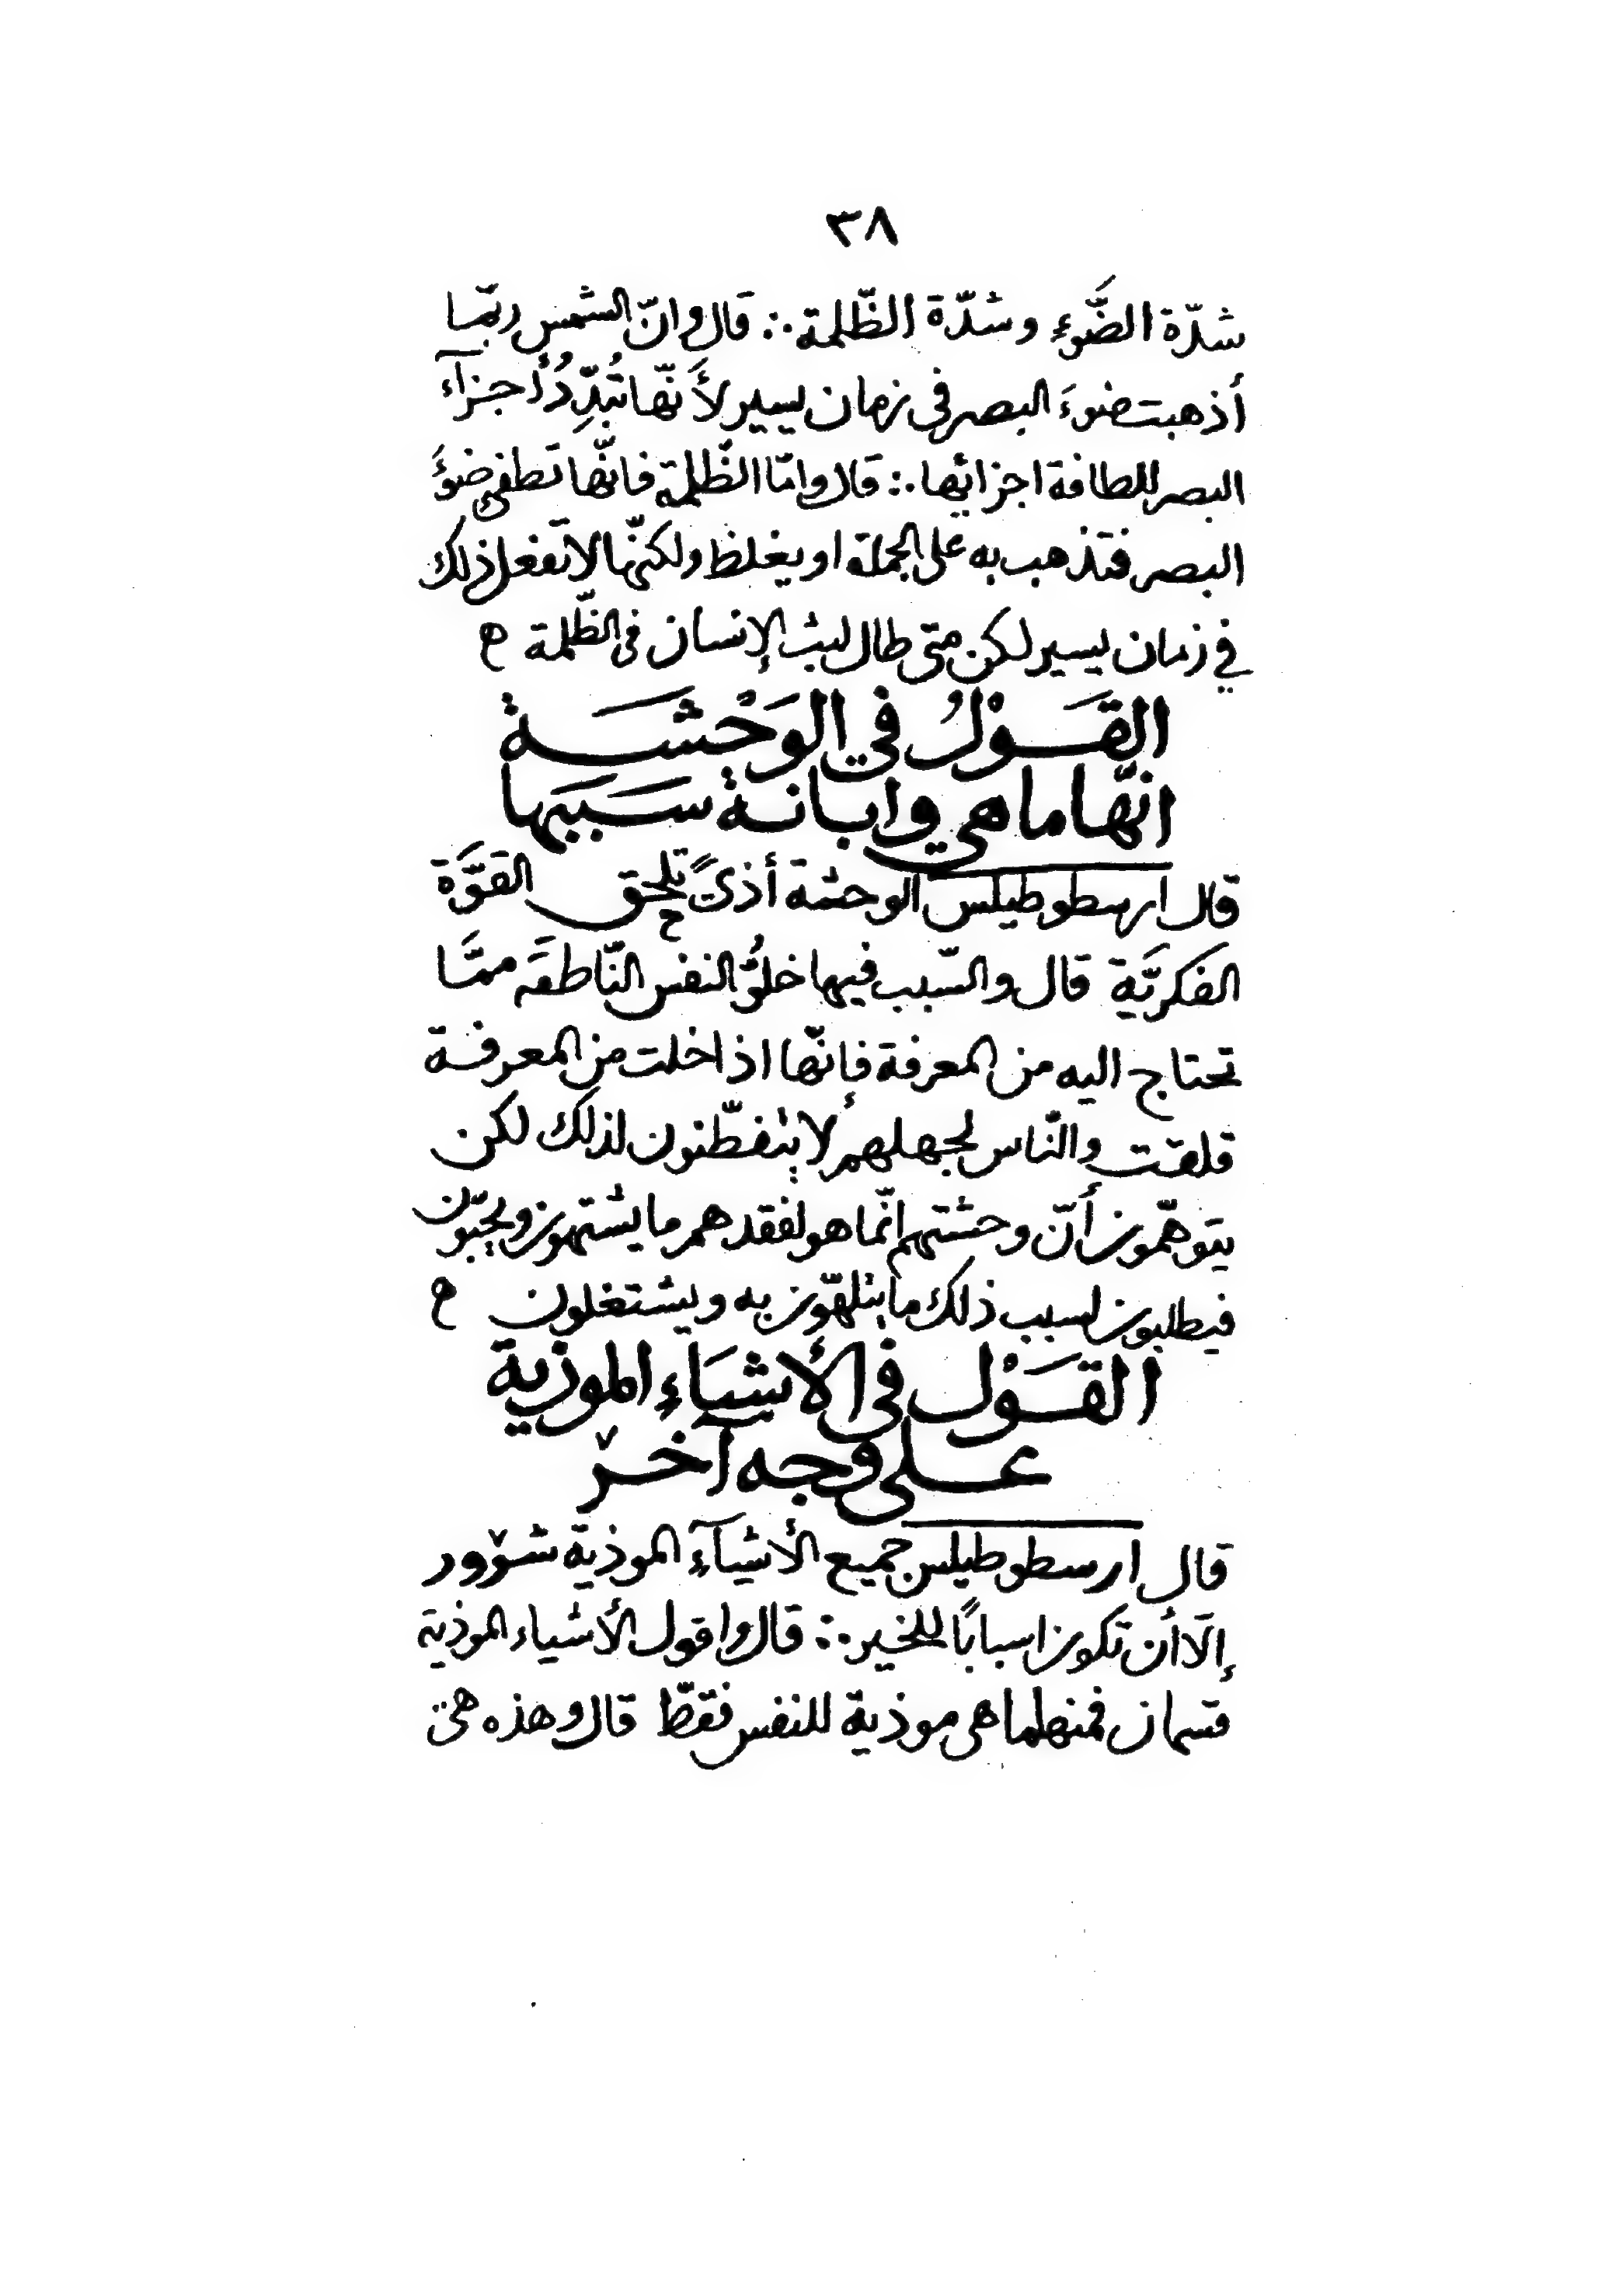 ٣٨
شدّة الضَّوءِ وشدّة الظّلمة ∴ قال وانّ الشمس ربّما
أذهبت ضوءَ البصر فى زمان يسير لأَنّها تُبَدِّدُ أُجزآء
البصر للطافة اجزائها ∴ قال وامّا الظّلمة فانّها تطفئ ضوءَ
البصر فتذهب به على الجملة او يغلظ ولكنّها لا تفعل ذلك
في زمان يسير لكن متى طال لبث الإنسان فى الظّلمة ه
القَوْلُ في الوَحْشَة
انّها ما هي وابانة سَبَبها
قال ارسطوطيلس الوحشة أذىً تلحق القوَّة
الفكريَّة قال والسّبب فيها خلوُّ النفس النّاطقَة ممَّا
تحتاج اليه من المعرفة فإنّها اذا خلت من المعرفة
قلقت والنّاس لجهلهم لا يتفطّنون لذلك لكن
يتوهّمون أنّ وحشتهم انّما هو لفقدهم ما يشتهون ويحبّون
فيطلبون لسبب ذلك ما يتلهّون به ويشتغلون ه
القَوْل في الأشيَاءِ الموذية
على وجه آخر
قال ارسطوطيلس جميع الأشيآءِ الموذية شرور
إلّا أن تكون اسبابًا للخير ∴ قال واقول الأشياء الموذية
قسمان فمنها ما هى موذية للنفس فقطّ قال وهذه هى